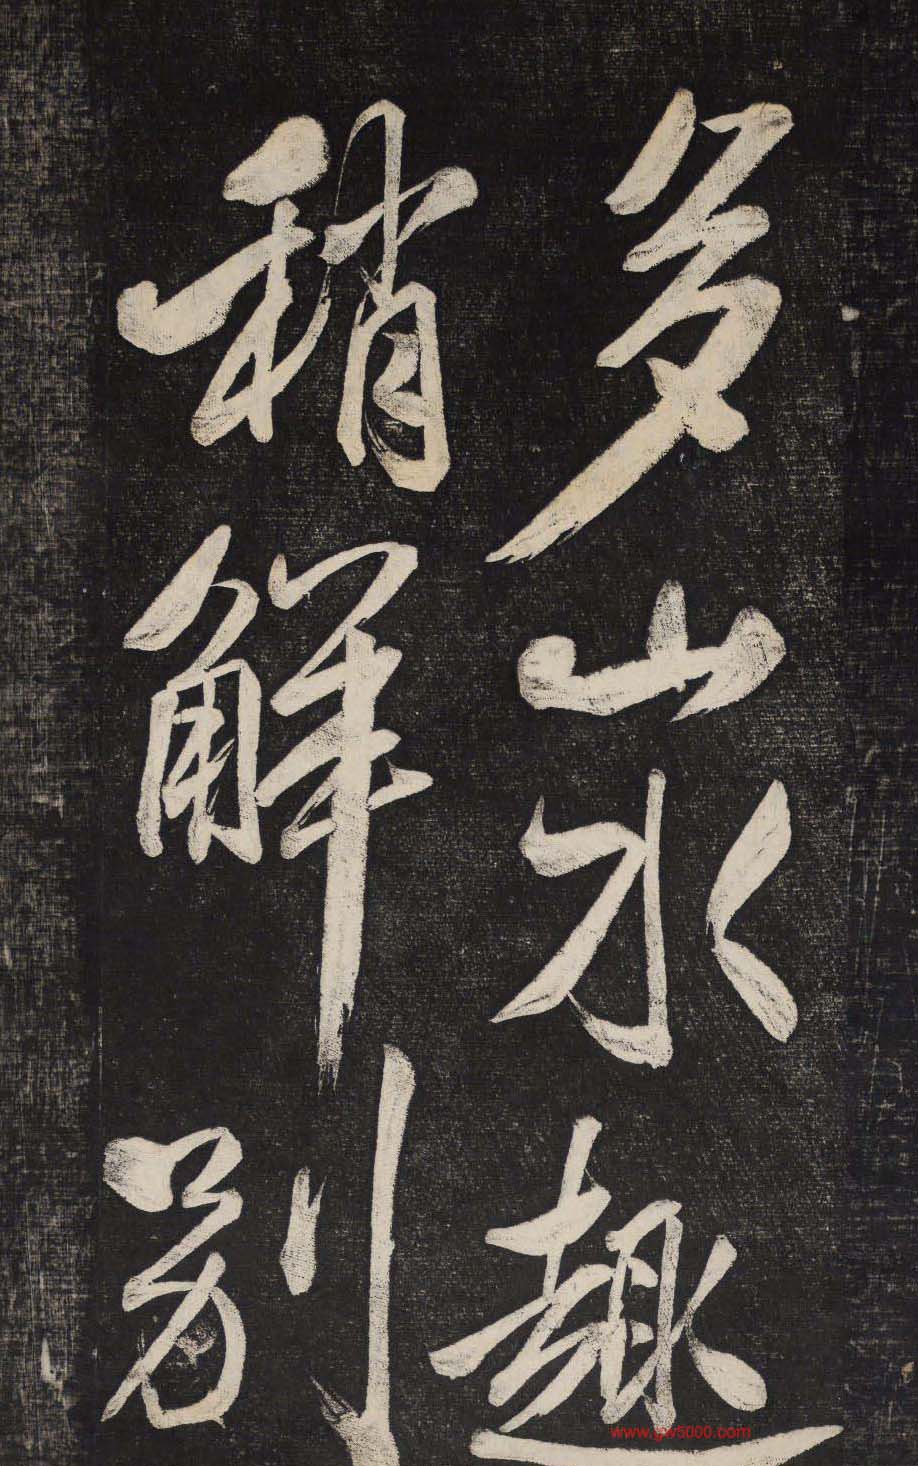 多山水趣
稍解別
www.gw5000.com